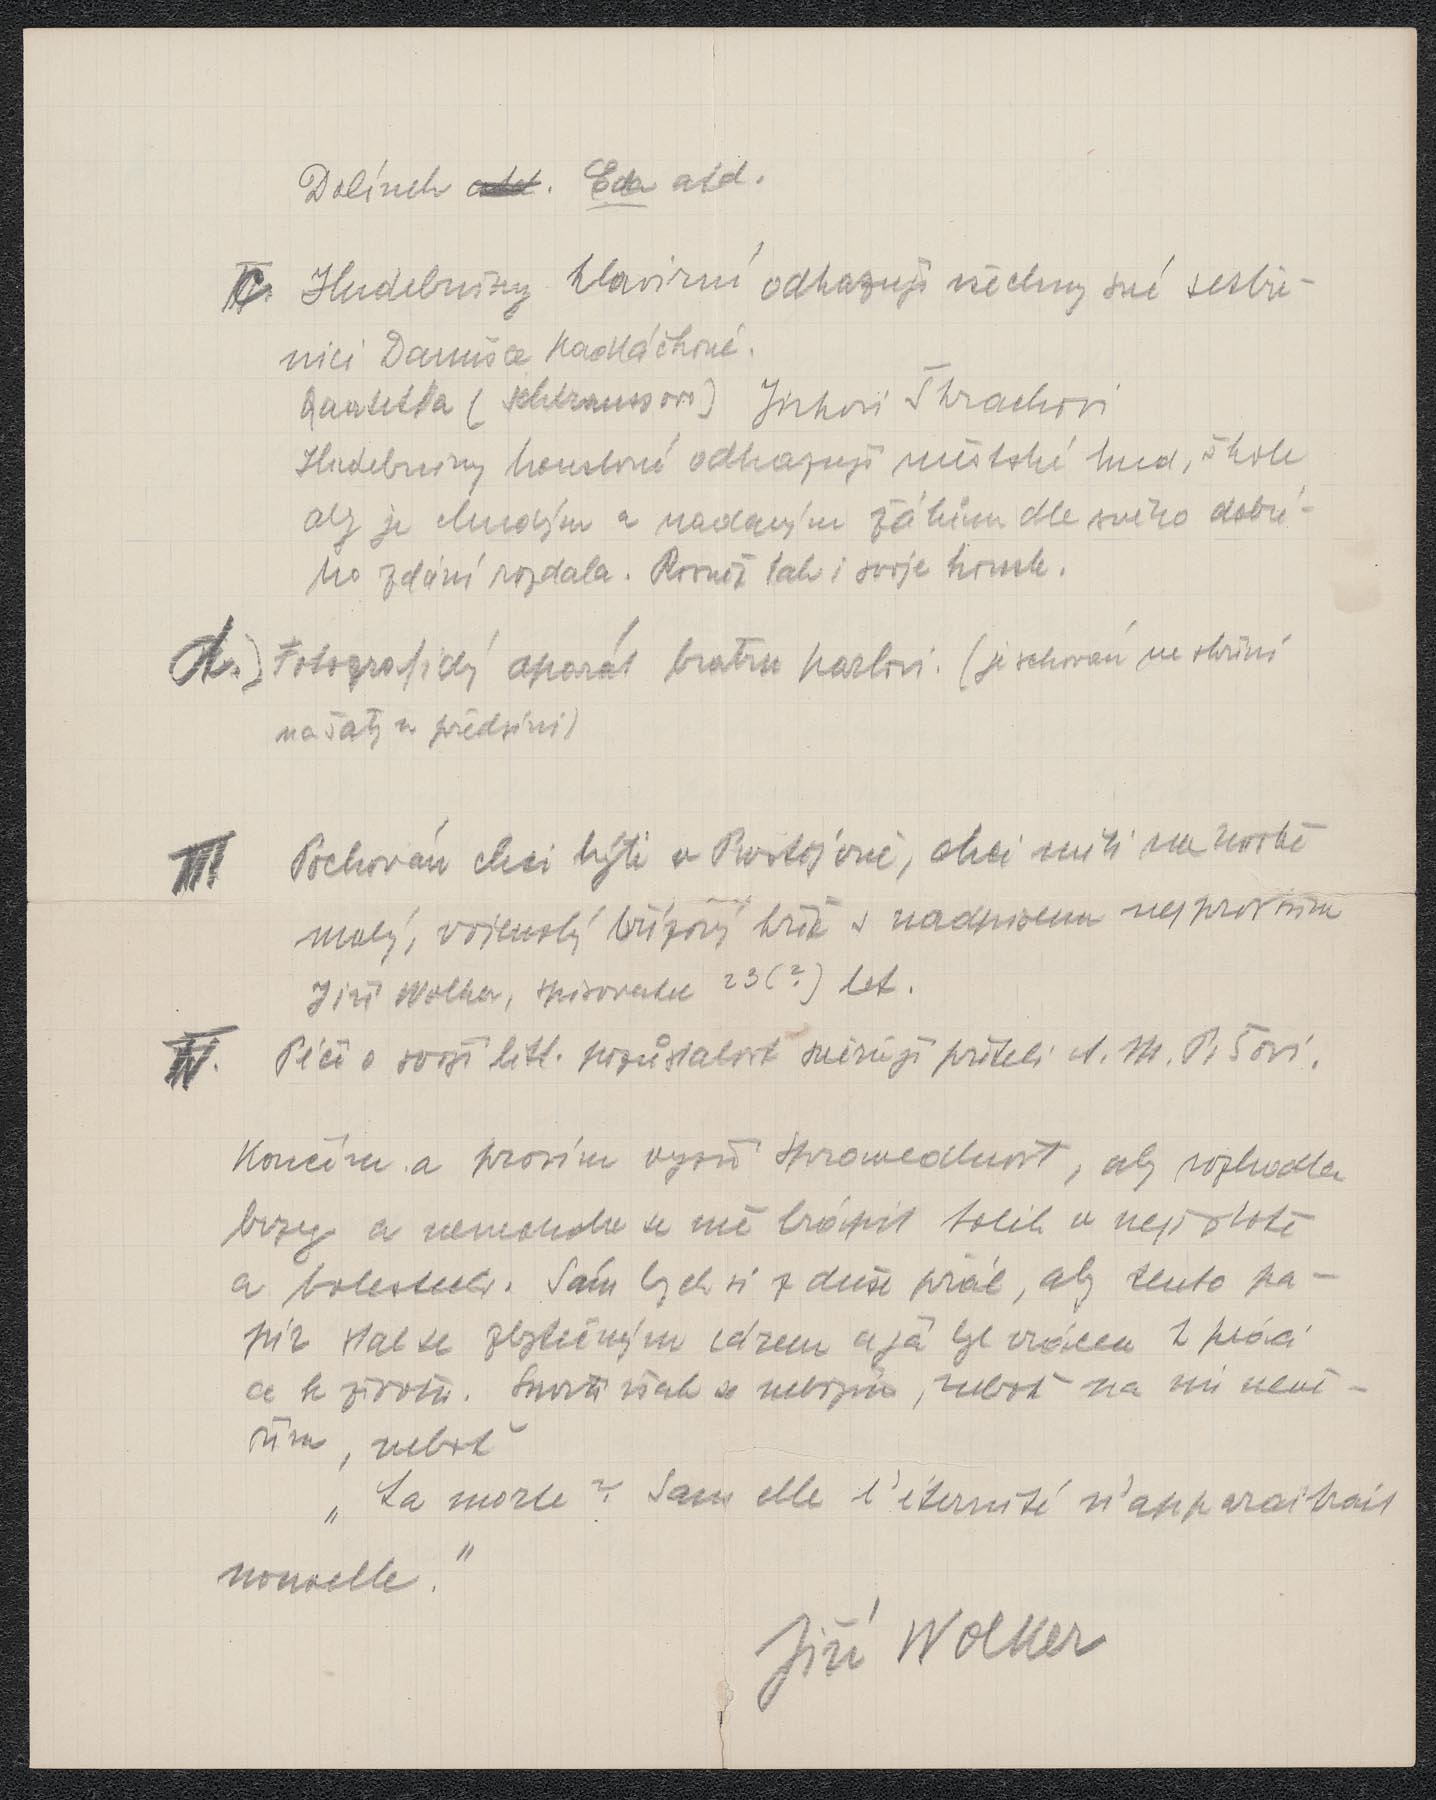 Dolínek atd. Eda atd.
c. Hudebniny klavírní odkazuji všechny své sestře-
nici Danušce
(Schtraussovi) Jirkovi Škrachovi
Hudebniny houslové odkazuji městské hud, škole
aby je chudým a nadaným žákům dle svého dobré-
ho zdání rozdala. Rovněž tak i svoje housle.
d.) Fotografický aparát bratru Karlovi. (je schován ve skříni
na šaty v předsíni)
III. Pochován chci býti v Prostějově, chci míti na hrobě
malý, vojenský březový kříž s nadpisem nejprostším
Jiří Wolker, spisovatel 23(?) let.
IV. Péči o svoji litt. pozůstalost svěřuji příteli A. M. Píšovi.
Končím a prosím vyšší spravedlnost, aby rozhodla
brzy a nenechala se mě trápit tolik v nejistotě
a bolestech. Sám bych si z duše přál, aby tento pa-
pír stal se zbytečným cárem a já byl vrácen k práci
a k životu. Smrti však se nebojím, neboť na ni nevě-
řím, neboť
„La morte? Sans elle l'éternité n'apparaîtrait
nouvelle."
Jiří Wolker